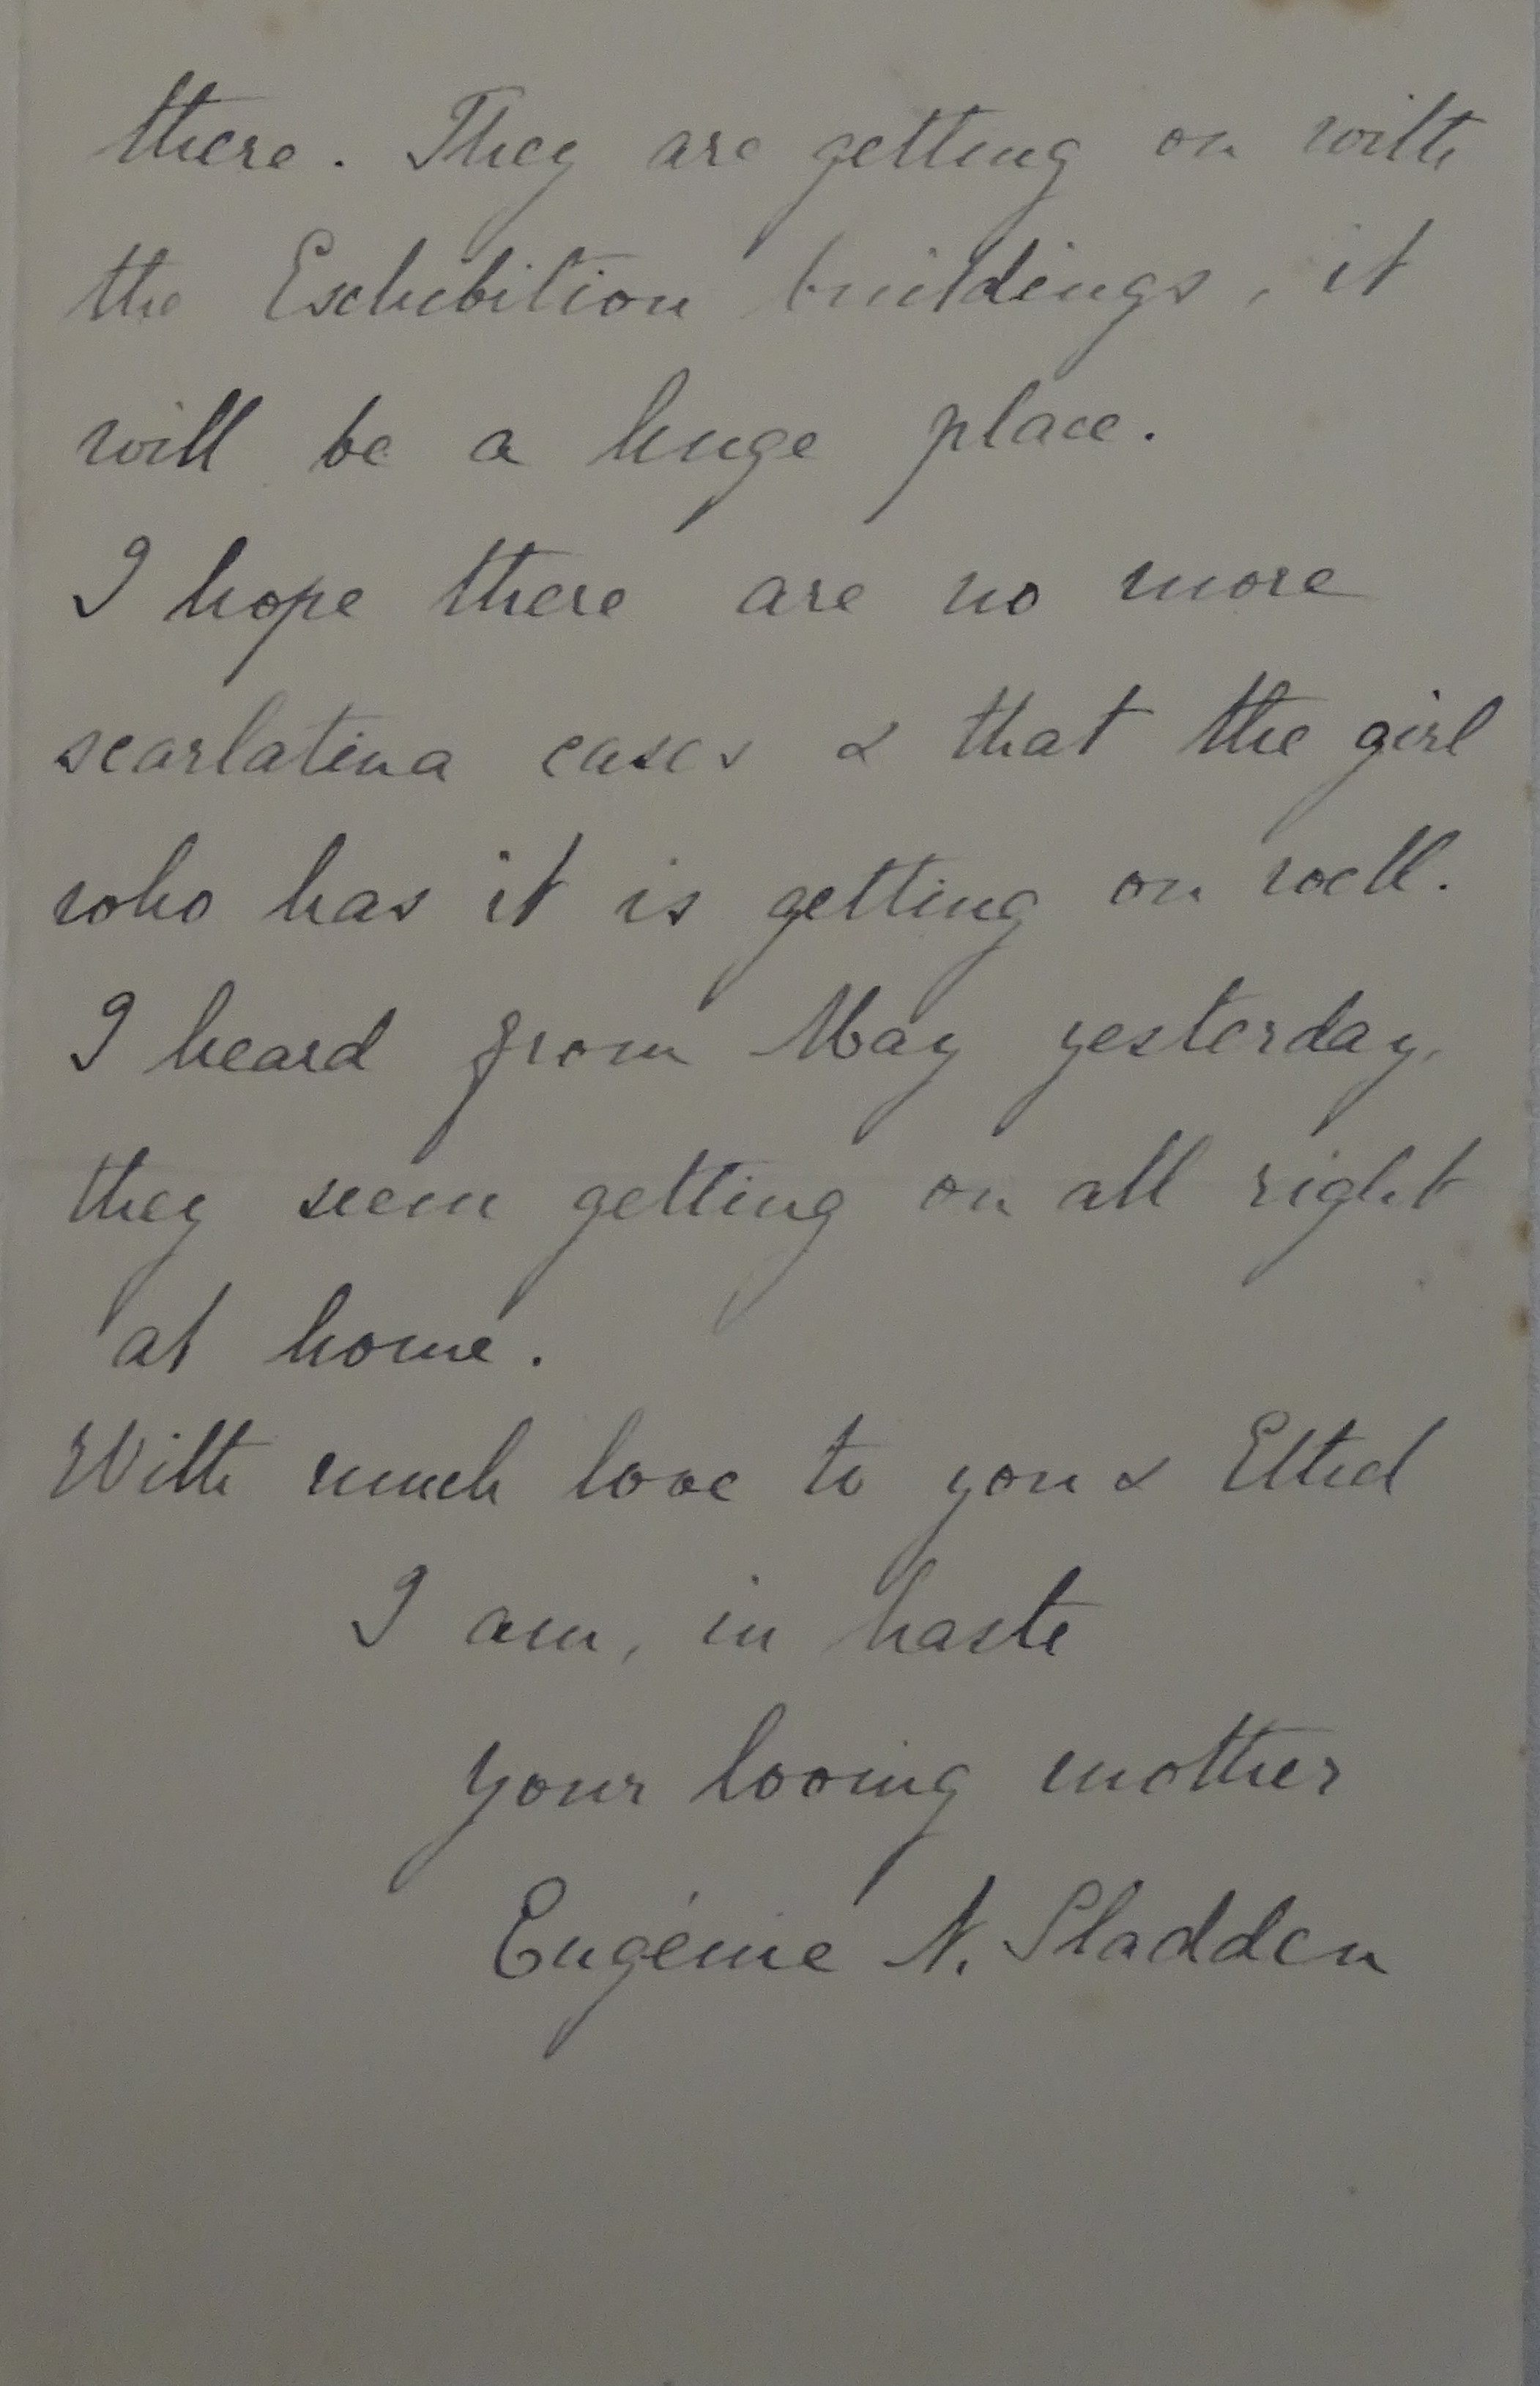 there. They are getting on with
the Exhibition buildings, it
will be a huge place.
I hope there are no more
scarlatina cases & that the girl
who has it is getting on well.
I heard from May yesterday,
they seem getting on all right
at home.
With much love to you & Ethel
I am, in haste
your loving mother
Eugénie N. Sladden